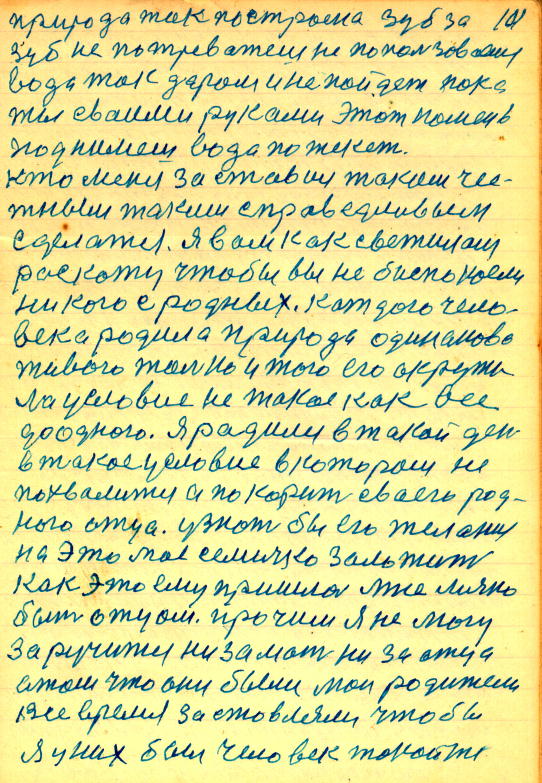 природа так построена зуб за 101
зуб не потреватеш не попользоваеш
вода так даром и не пойдет пока
ты сваими руками этот помень
поднимеш вода потекет.
кто меня заставил таким чес-
тным таким справедливым
сделатя. Я вам как светилам
раскожу чтобы вы не биспокоели
никого с родных. каждого чело-
века родила природа одинаково
живого толко у того его акружи
ла условие не такое как все
доодного. Я радили в такой ден
в такое условие в котором не
похвалити а покорит сваего род-
ного отца. узнат бы его желания
на это мое семичко заложит
как это ему пришлос мне лично
быт отцом. прочим я не могу
заручитя ни за мат ни за отца
атом что они были мои родители
все время заставляли чтобы
я у них был человек такойже